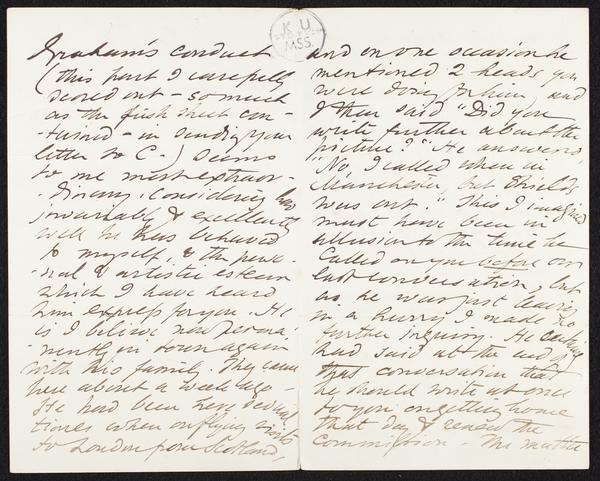 K U
MSS.
Graham's conduct
(this part I carefully
scored out – so much
as the first sheet con-
-tained – in sending your
letter to C–) seems
to me most extraor-
-dinary, considering how
invariably & excellently
well he has behaved
to myself, & the perso-
-nal & artistic esteem
which I have heard
him express for you. He
is I believe now perma-
-nently in town again
with his family. They came
here about a week ago –
He had been here several
times when on flying visits
to London from Scotland,
and on one occasion he
mentioned 2 heads you
were doing for him, and
I then said "Did you
write further about the
picture?" He answered,
"No, I called when in
Manchester, but Shields
was out." This I imagined
must have been in
allusion to the time he
called on you before our
last conversation, but
as he was just leaving
in a hurry I made no
further inquiry. He certainly
had said at the end of
that conversation that
he should write at once
to you on getting home
that day & renew the
commission – The matter